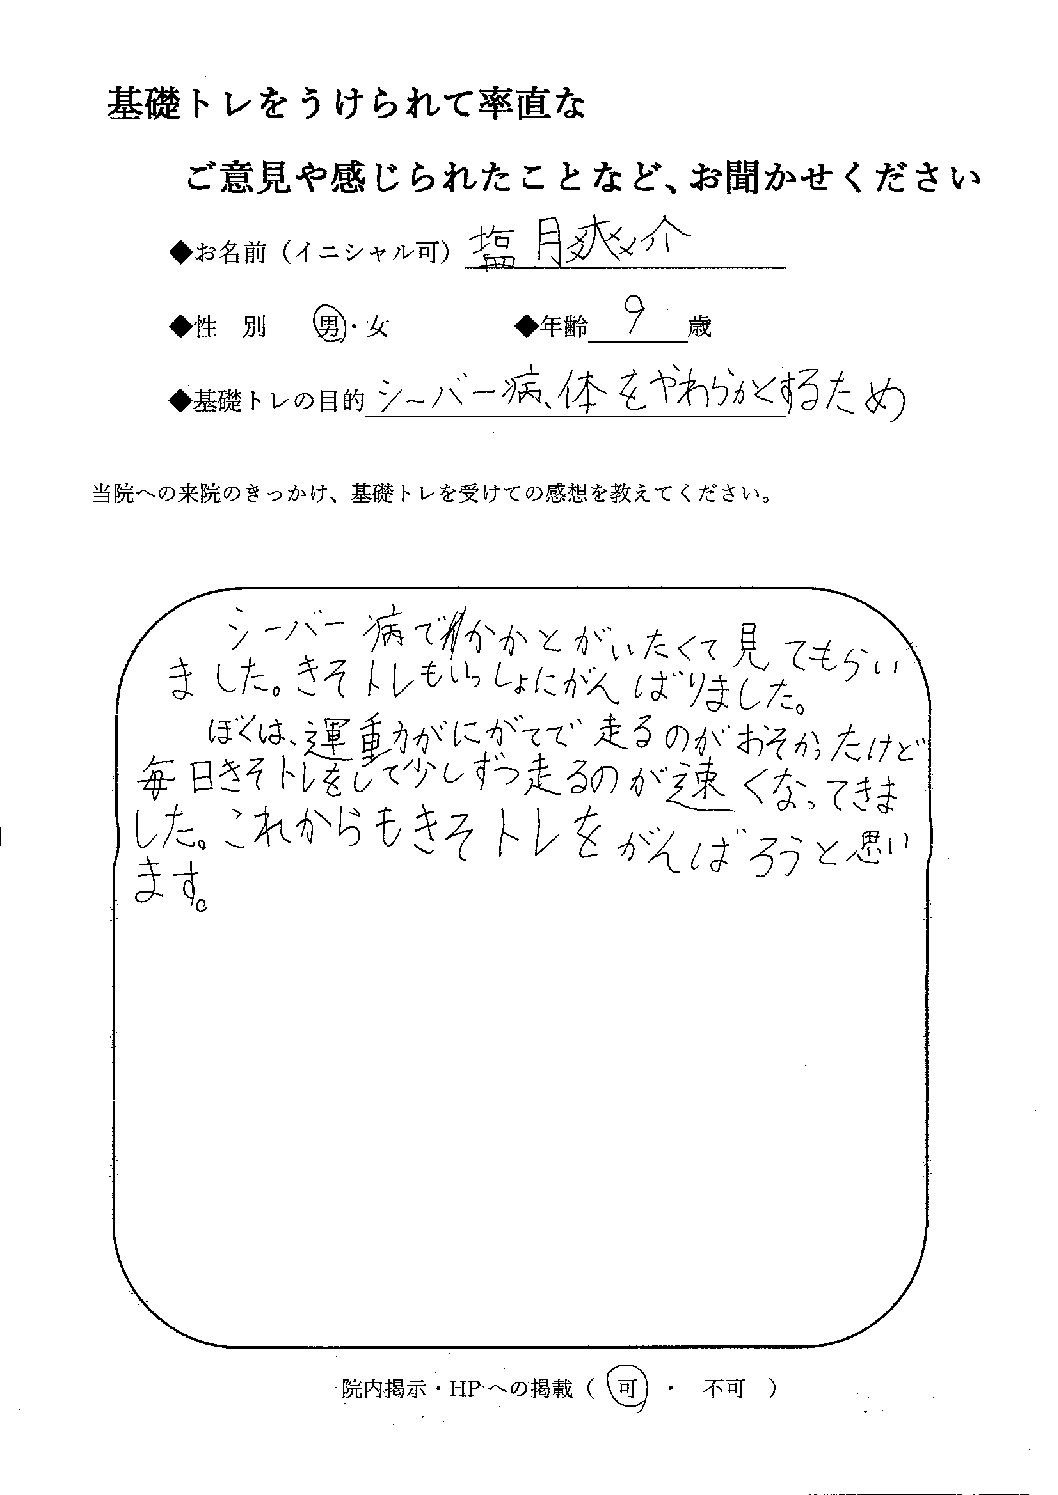 基礎トレをうけられて率直な
ご意見や感じられたことなど、お聞かせください
◆お名前（イニシャル可） 塩月爽介
◆性 別 男・女 ◆年齢 9 歳
◆基礎トレの目的 シーバー病、体をやわらかくするため
当院への来院のきっかけ、基礎トレを受けての感想を教えてください。
シーバー病でかかとがいたくて見てもらい
ました。きそトレもいっしょにがんばりました。
ぼくは、運動がにがてで走るのがおそかったけど
毎日きそトレをして少しずつ走るのが速くなってきま
した。これからもきそトレをがんばろうと思い
ます。
院内掲示・HPへの掲載（ 可 ・ 不可 ）